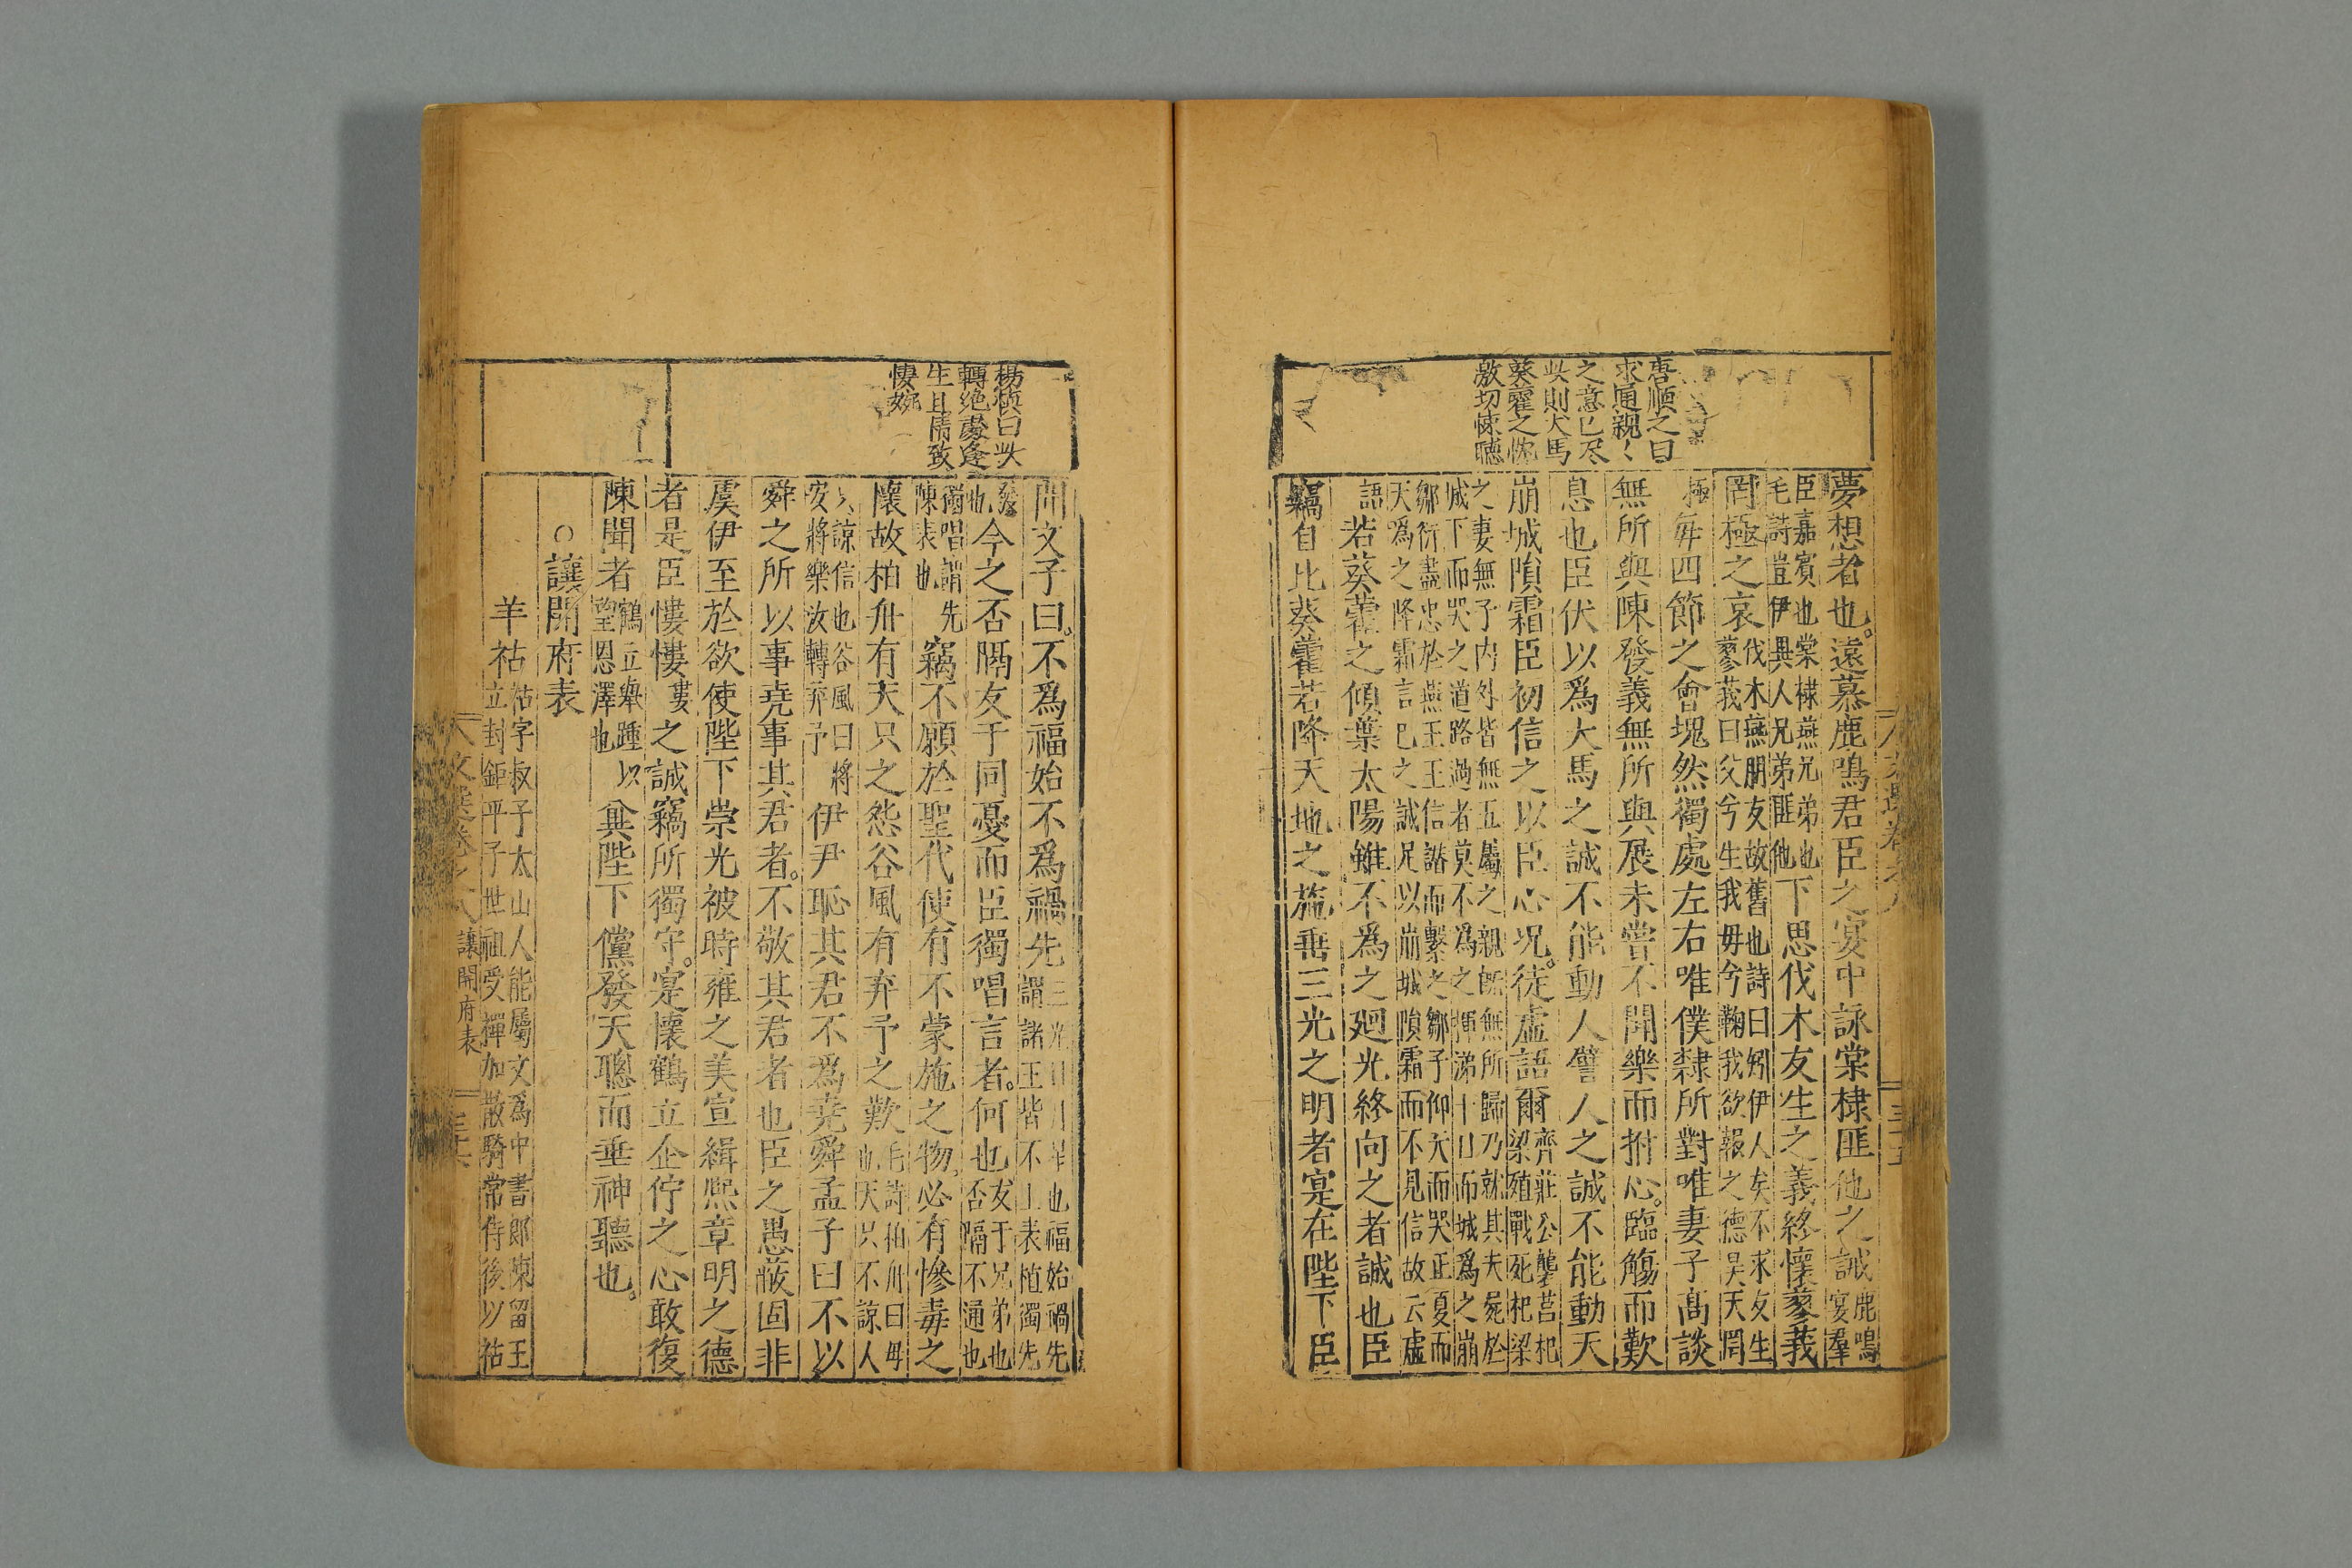 唐順之曰
求通親〻
之意已尽
此則犬馬
葵藿之忱
激切悚聽
夢想者也。遠慕鹿鳴君臣之宴中詠棠棣匪他之誡鹿鳴宴羣
臣嘉賓也棠棣燕兄弟也毛詩豈伊異人兄弟匪他下思伐木友生之義終懷蓼莪
罔極之哀伐木燕朋友故舊也詩曰矧伊人矣不求友生蓼莪曰父兮生我毋兮鞠我欲報之德昊天罔
極每四節之會塊然獨處左右唯僕隸所對唯妻子高談
無所與陳發義無所與展未嘗不聞樂而拊心。臨觴而歎
息也臣伏以爲犬馬之誠不能動人譬人之誠不能動天
崩城隕霜臣初信之以臣心况。徒虛語爾齊莊公襲莒杞梁殖戰死杞梁
之妻無子内外皆無五屬之親旣無所歸乃就其夫屍於城下而哭之道路過者莫不爲之揮涕十日而城爲之崩
鄒衍盡忠於燕王王信譖而繫之鄒子仰天而哭正夏而天爲之降霜言巳之誠足以崩城隕霜而不見信故云虛
語若葵藿之傾葉太陽雖不爲之廻光終向之者誠也臣
竊自比葵藿若降天地之施垂三光之明者寔在陛下臣
楊慎曰此
轉絶處逢
生且情致
悽婉
聞文子曰。不爲福始不爲禍先三光日月星也福始禍先謂諸王皆不上表植獨先
發也今之否隔友于同憂而臣獨唱言者。何也友于兄弟也否隔不通也
獨唱謂先陳表也竊不願於聖代使有不蒙施之物必有慘毒之
懷故柏舟有天只之怨谷風有弃予之歎毛詩柏舟曰毋也天只不諒人
只諒信也谷風曰將安將樂汝轉弃予將伊尹恥其君不爲堯舜孟子曰不以
舜之所以事堯事其君者。不敬其君者也臣之愚蔽固非
虞伊至於欲使陛下崇光被時雍之美宣緝熙章明之德
者是臣慺慺婁之誠竊所獨守。寔懷鶴立企佇之心敢復
陳聞者鶴立舉踵望恩澤也以兾陛下儻發天聰而垂神聽也。
○讓開府表
羊祜祜字叔子太山人能屬文爲中書郎陳留王立封鉅平子世祖受禪加散騎常侍後以祜
讓開府表